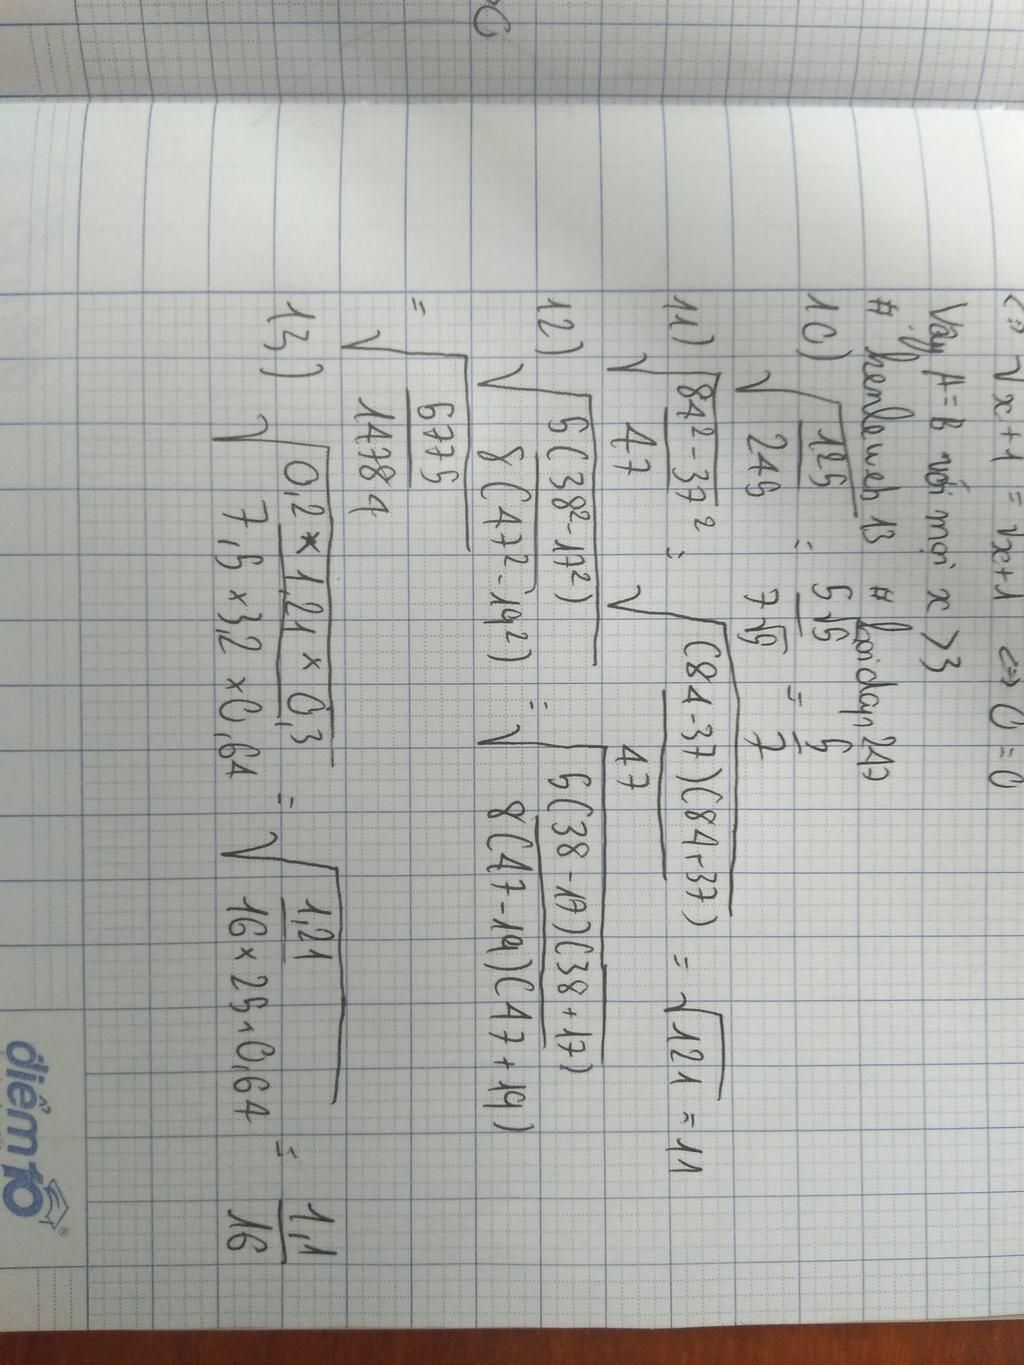 <=> √x+1 = √x+1 <=> 0 = 0
Vậy A=B với mọi x >3
# henleweb 13 # hoidap247
10) √(125/245) = 5√5/7√5 = 5/7
11) √((84² - 37²)/47) = √((84-37)(84+37)/47) = √121 = 11
12) √(5(38²-17²)/8(47²-19²)) = √(5(38-17)(38+17)/8(47-19)(47+19))
= √(5775/14784)
13) √(0,2 × 1,21 × 0,3/7,5 × 3,2 × 0,64) = √(1,21/16 × 25 × 0,64) = 1,1/16
điểm10